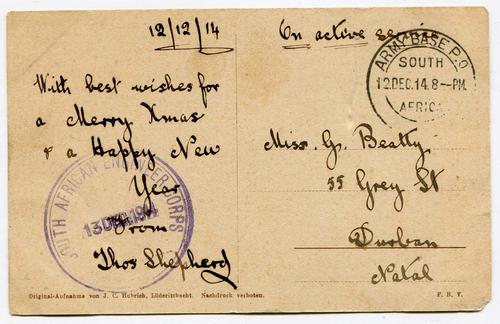 12/12/14
With best wishes for
a Merry Xmas
& a Happy New
Year
From
Thos Shepherd
On active service
ARMY BASE P.O.
SOUTH
12 DEC.14.8-PM.
AFRICA
Miss. G. Beatty.
55 Grey St
Durban
Natal
SOUTH AFRICAN ENGINEER CORPS
13 DEC 1914
Original-Aufnahme von J. C. Hubrich, Lüderitzbucht. Nachdruck verboten.
F. B. V.